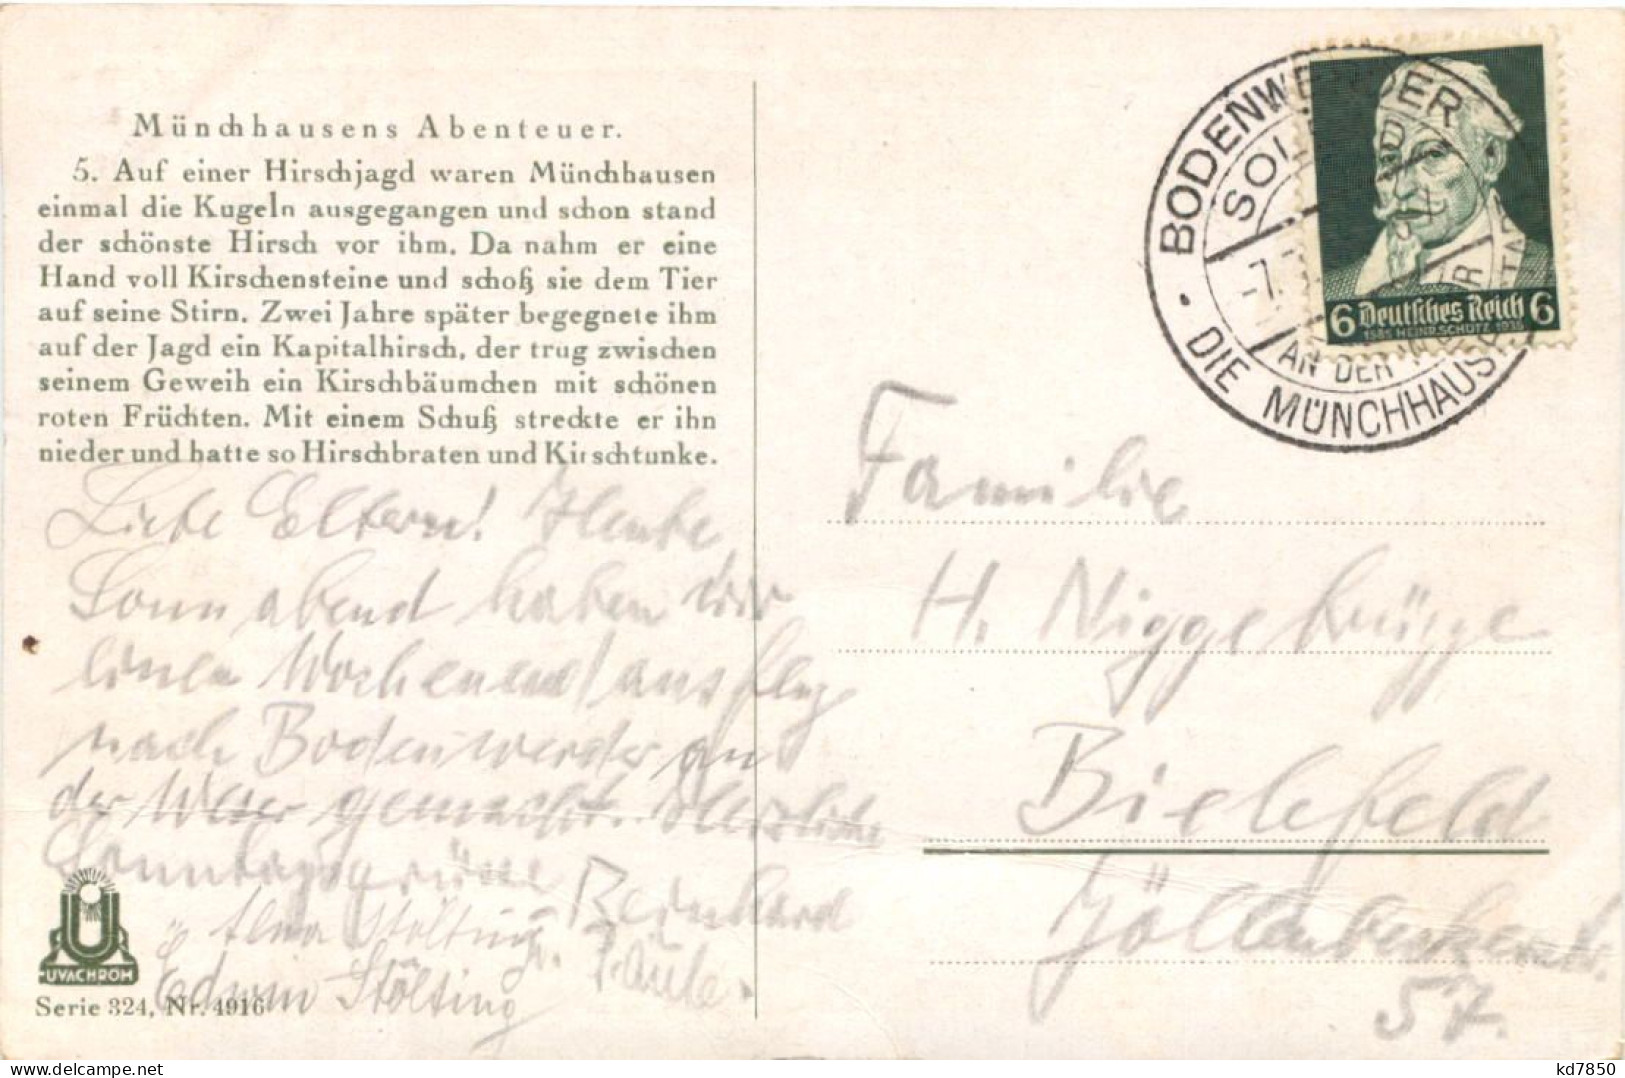 Münchhausens Abenteuer.
5. Auf einer Hirschjagd waren Münchhausen
einmal die Kugeln ausgegangen und schon stand
der schönste Hirsch vor ihm. Da nahm er eine
Hand voll Kirschensteine und schoß sie dem Tier
auf seine Stirn. Zwei Jahre später begegnete ihm
auf der Jagd ein Kapitalhirsch, der trug zwischen
seinem Geweih ein Kirschbäumchen mit schönen
roten Früchten. Mit einem Schuß streckte er ihn
nieder und hatte so Hirschbraten und Kirschtunke.
Liebe Eltern! Heute
Sonnabend haben wir
einen Wochenendausflug
nach Bodenwerder an
der Weser gemacht. Herzliche
Sonntagsgrüße Bernhard
Stölting u. Paula.
Edwin Stölting
UVACHROM
Serie 324, Nr. 4916
BODENWERDER
SOLBAD
-7.
AN DER WESER
DIE MÜNCHHAUSENSTADT
6 Deutsches Reich 6
1585 HEINR. SCHÜTZ 1935
Familie
H. Niggebrügge
Bielefeld
57.
kd7850